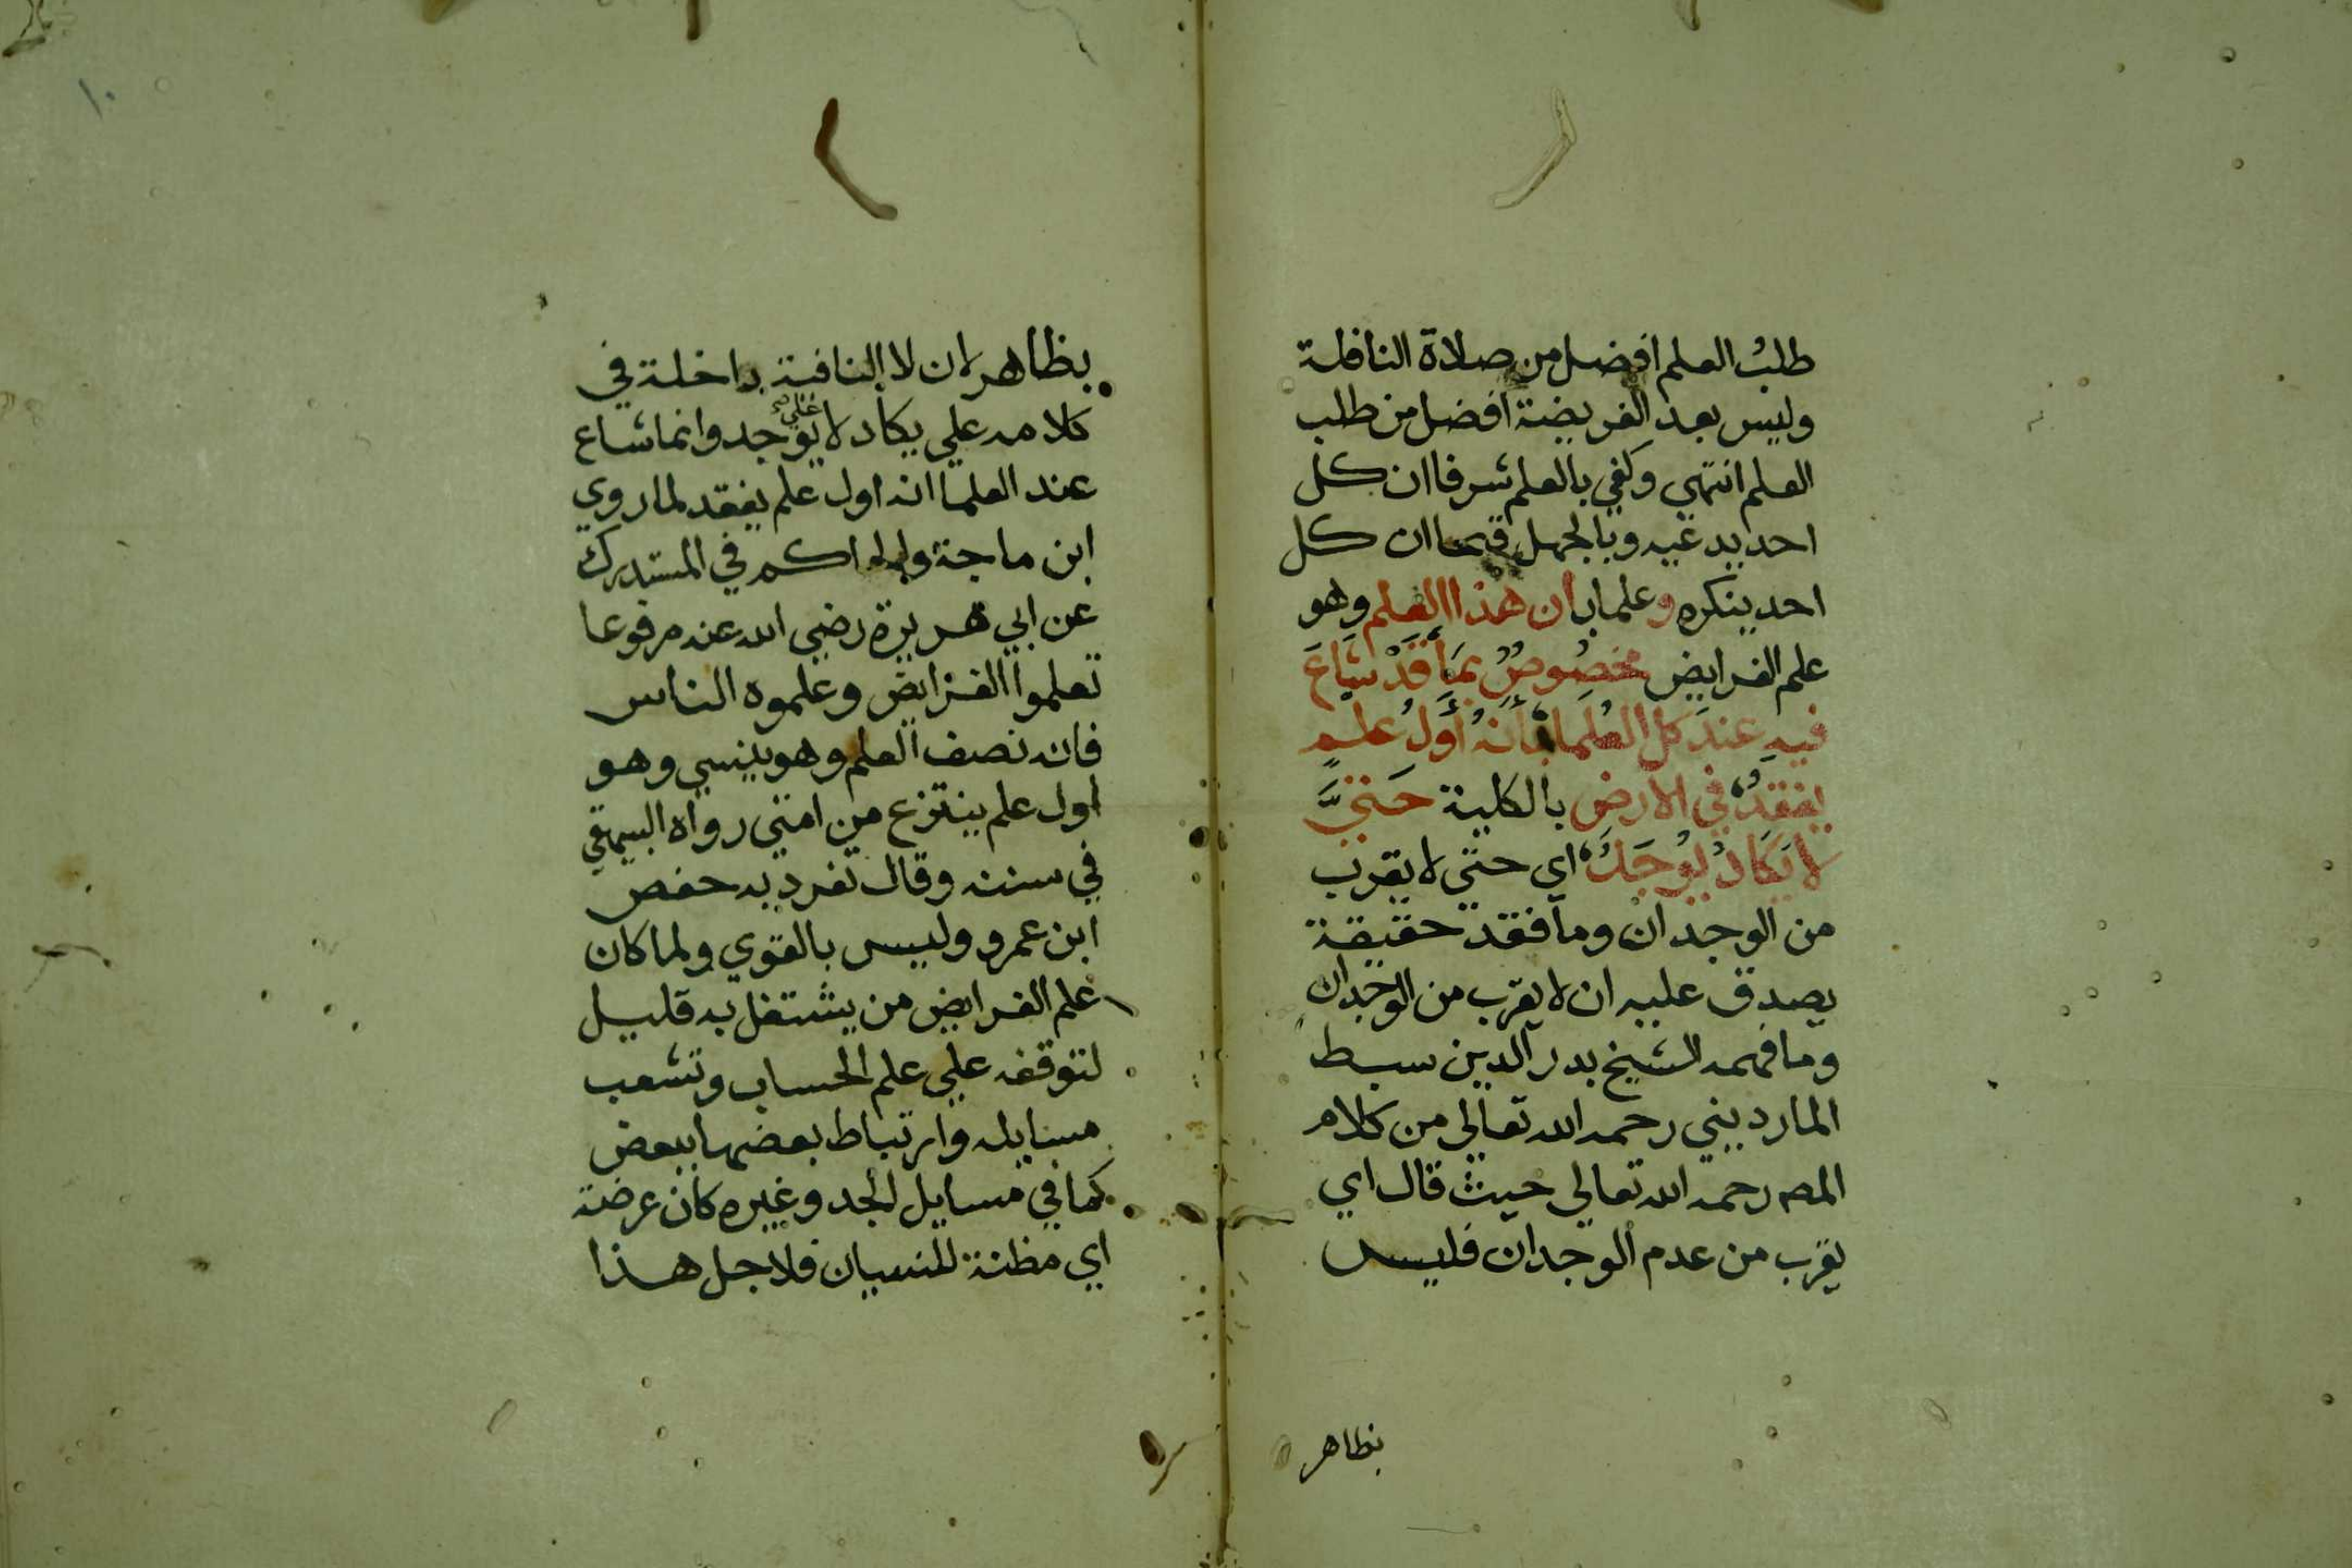 طلبُ العلم افضل من صلاة النافلة
وليس بعد الفريضة افضل من طلب
العلم انتهي وكفي بالعلم شرفا ان كل
احد يدعيه وبالجهل قبحا ان كل
احد ينكره وعلما بان هذا العلم وهو
علم الفرايض مخصُوصٌ بمَا قَدْ شَاعَ
فيهِ عندَ كل العُلَما بأنهُ أوَّلُ علمٍ
يفقدُ في الارض بالكلية حَتيَّ
لا يَكادُ يُوجَدُ اي حتي لا يقرب
من الوجدان وما فقد حقيقة
يصدق عليه ان لا يقرب من الوجدان
وما فهمه الشيخ بدر الدين سبط
المارديني رحمه الله تعالي من كلام
المصہ رحمه الله تعالي حيث قال اي
يقرب من عدم الوجدان فليس
بظاهر
١٠
بظاهر لان لا النافية داخلة في
كلامه علي يكاد لا علي يوجد وانما شاع
عند العلما انه اول علم يفقد لما روي
ابن ماجة والحاكم في المستدرك
عن ابي هريرة رضي الله عنه مرفوعا
تعلموا الفرايض وعلموه الناس
فانه نصف العلم وهو ينسي وهو
اول علم ينتزع من امتي رواه البيهقي
في سننه وقال تفرد به حفص
ابن عمرو وليس بالقوي ولما كان
علم الفرايض من يشتغل به قليل
لتوقفه علي علم الحساب وتشعب
مسايله وارتباط بعضها ببعض
كما في مسايل الجد وغيره كان عرضة
اي مظنة للنسيان فلاجل هذا